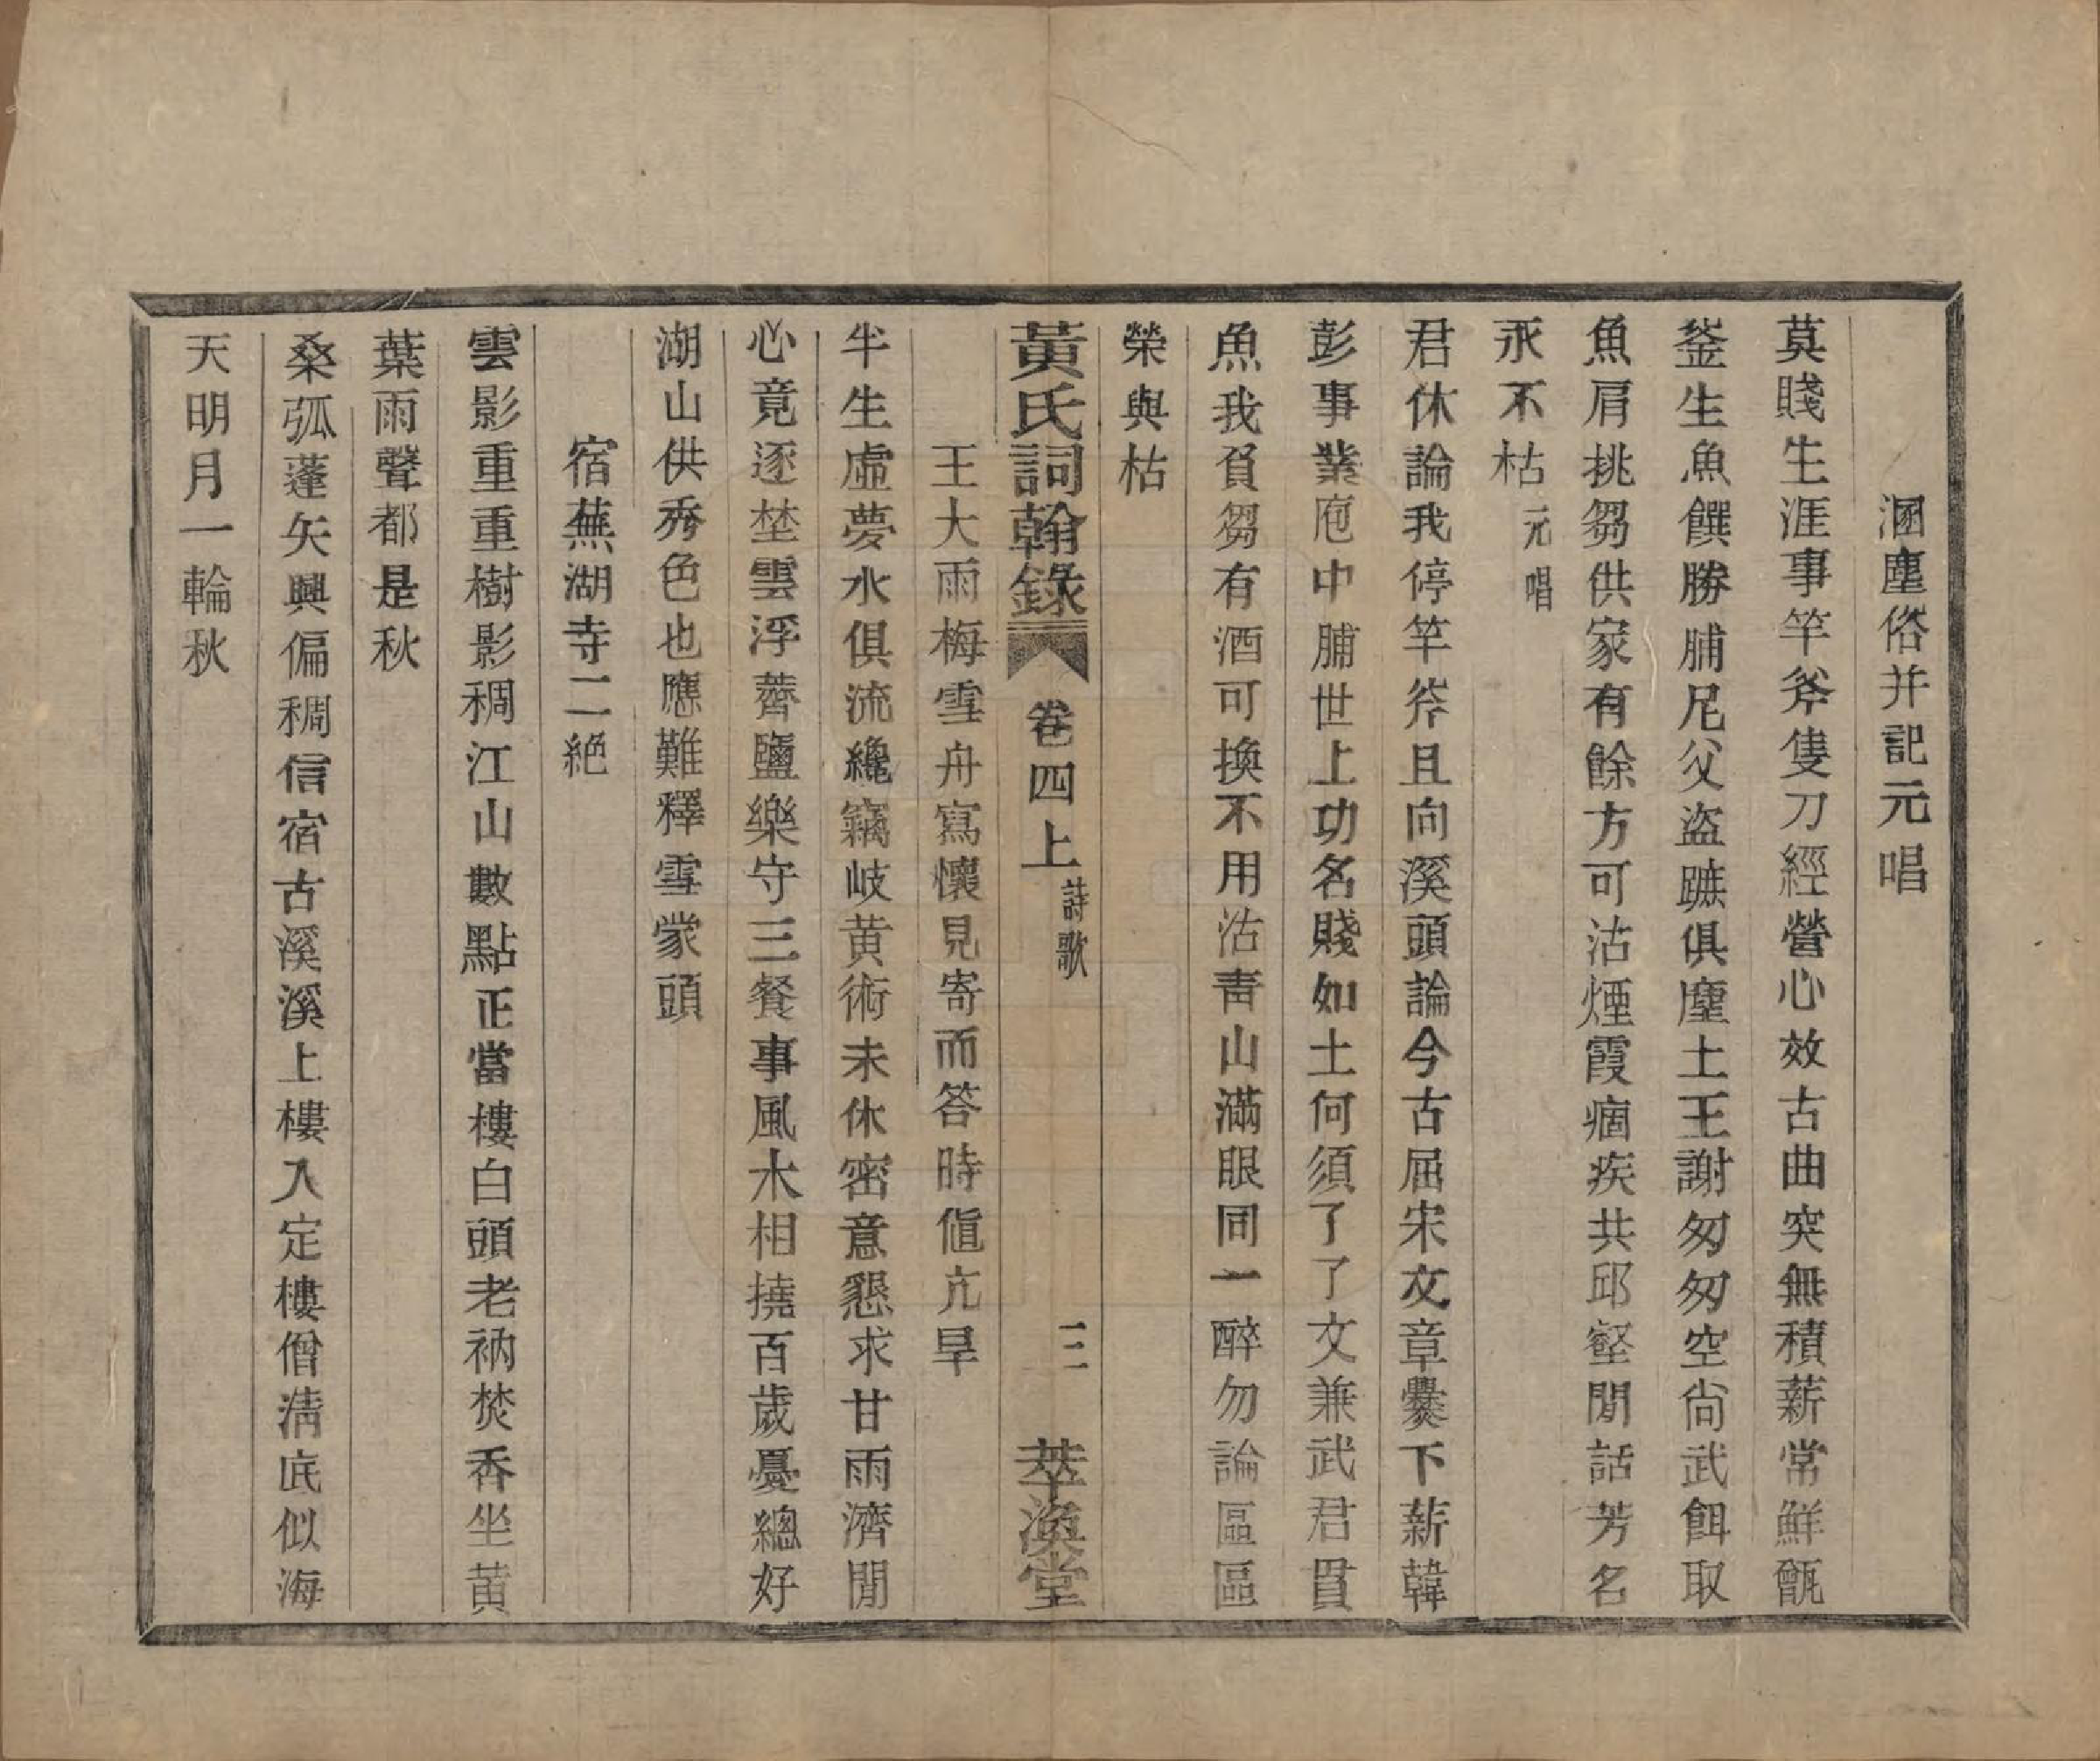 溷塵俗并記元唱
莫賤生涯事竿斧隻刀經營心效古曲突無積薪常鮮甑
釜生魚饌勝脯尼父盜蹠俱塵土王謝匆匆空尙武餌取
魚肩挑芻供家有餘方可沽煙霞痼疾共邱壑閒話芳名
永不枯元唱
君休論我停竿斧且向溪頭論今古屈宋文章爨下薪韓
彭事業庖中脯世上功名賤如土何須了了文兼武君貫
魚我負芻有酒可換不用沽青山滿眼同一醉勿論區區
榮與枯
黃氏詞翰錄 卷四上 詩歌 三 萃渙堂
王大雨梅雪舟寫懷見寄而答時値亢旱
半生虛夢水俱流纔竊岐黃術未休密意懇求甘雨濟閒
心竟逐埜雲浮薺鹽樂守三餐事風木相撓百歲憂總好
湖山供秀色也應難釋雪蒙頭
宿蕪湖寺二絕
雲影重重樹影稠江山數點正當樓白頭老衲焚香坐黃
葉雨聲都是秋
桑弧蓬矢興偏稠信宿古溪溪上樓入定樓僧淸底似海
天明月一輪秋